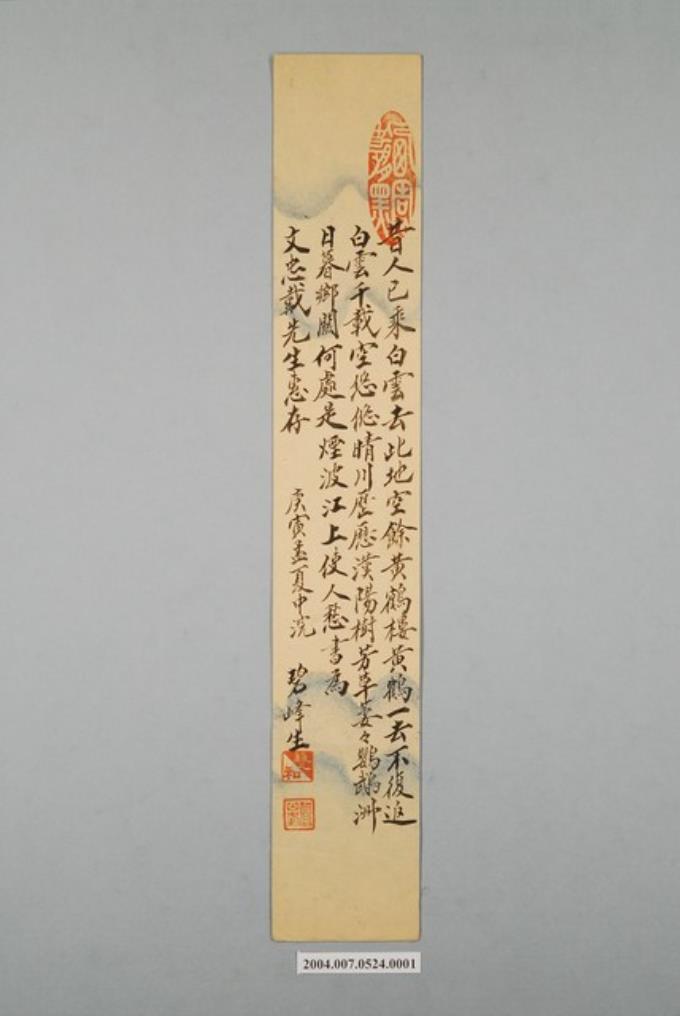 昔人已乘白雲去此地空餘黃鶴樓黃鶴一去不復返
白雲千載空悠悠晴川歷歷漢陽樹芳草萋々鸚鵡洲
日暮鄉關何處是煙波江上使人愁書為
文忠戴先生惠存
庚寅孟夏中浣 碧峰生
2004.007.0524.0001